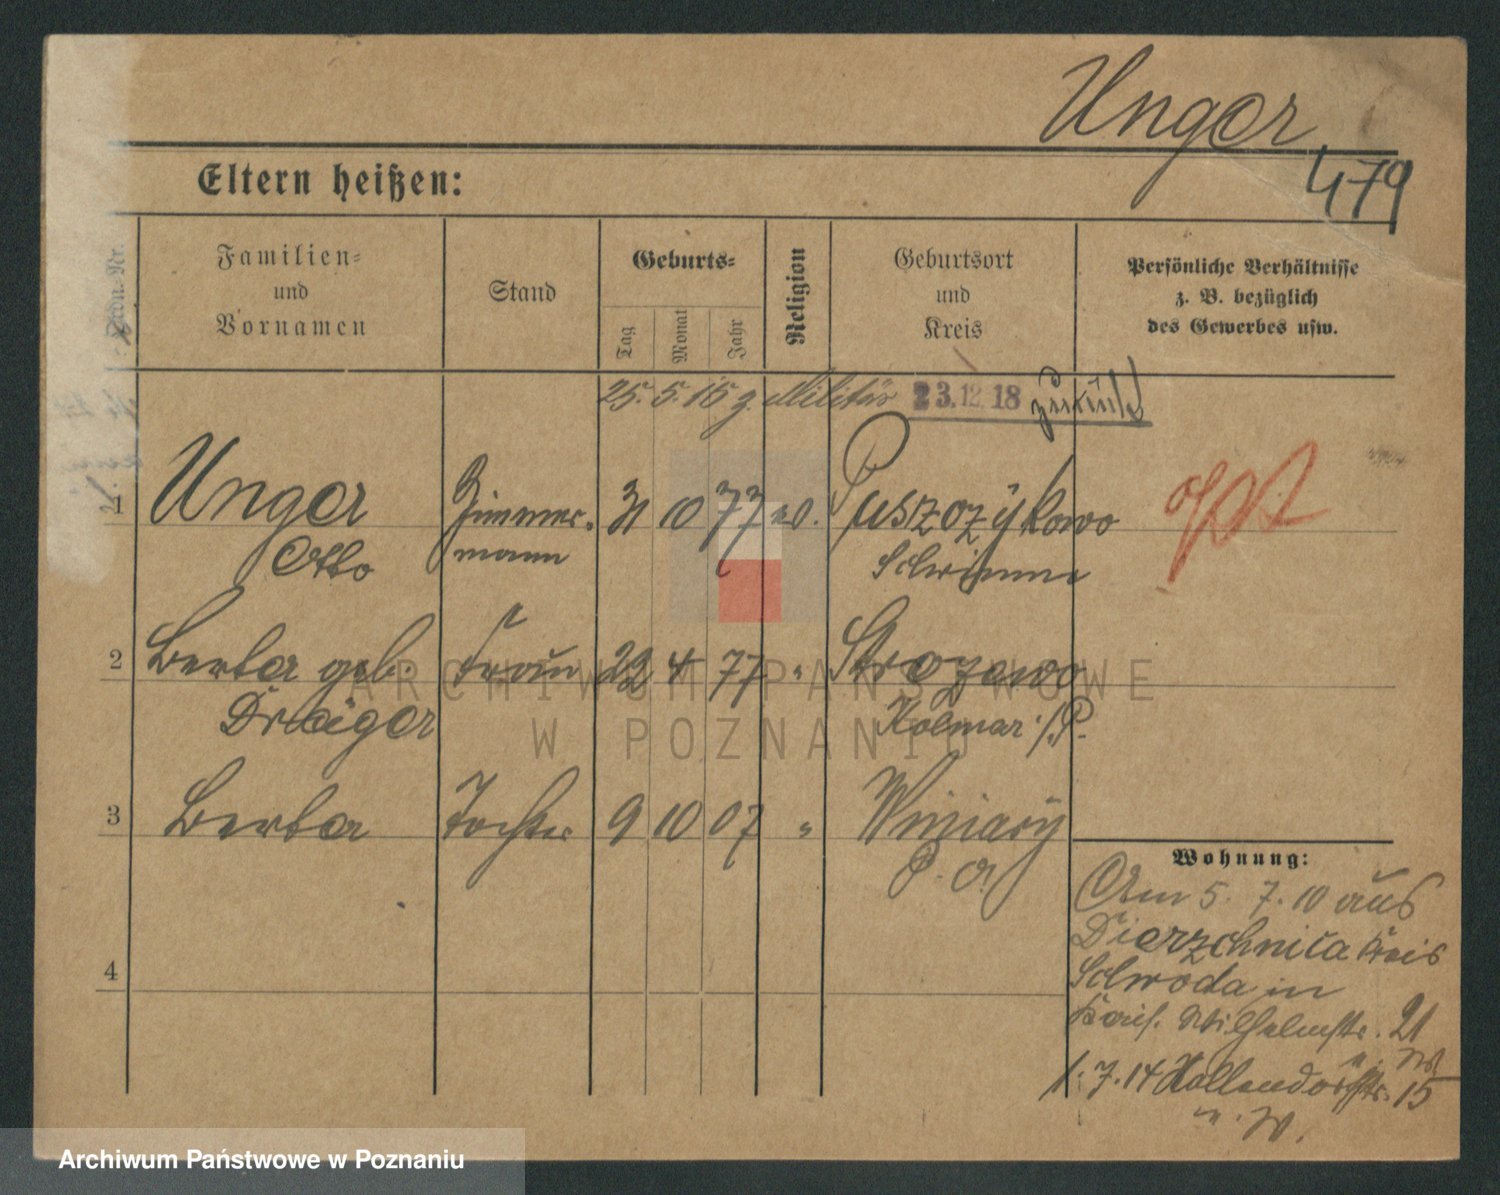 Unger
479
Eltern heißen:
Ordn.-Nr.
Familien-
und
Vornamen
Stand
Geburts-
Tag
Monat
Jahr
Religion
Geburtsort
und
Kreis
Persönliche Verhältnisse
z. B. bezüglich
des Gewerbes usw.
25. 5. 15 z. Militär 23.12.18 zurück
1 Unger Zimmer- 31 10 77 Puszczykowo
Otto mann Schrimm
2 Berta geb. Frau 22 4 77 " Strozewo
Dräger Kolmar i/P.
3 Berta Tochter 9 10 07 " Winiary
P. O.
4
Wohnung:
Am 5. 7. 10 aus
Dierzchnica Kreis
Schroda in
Kais. Wilhelmstr. 21
1. 7. 14 Hollendorfstr. 15
n. W.
ARCHIWUM PAŃSTWOWE
W POZNANIU
Archiwum Państwowe w Poznaniu